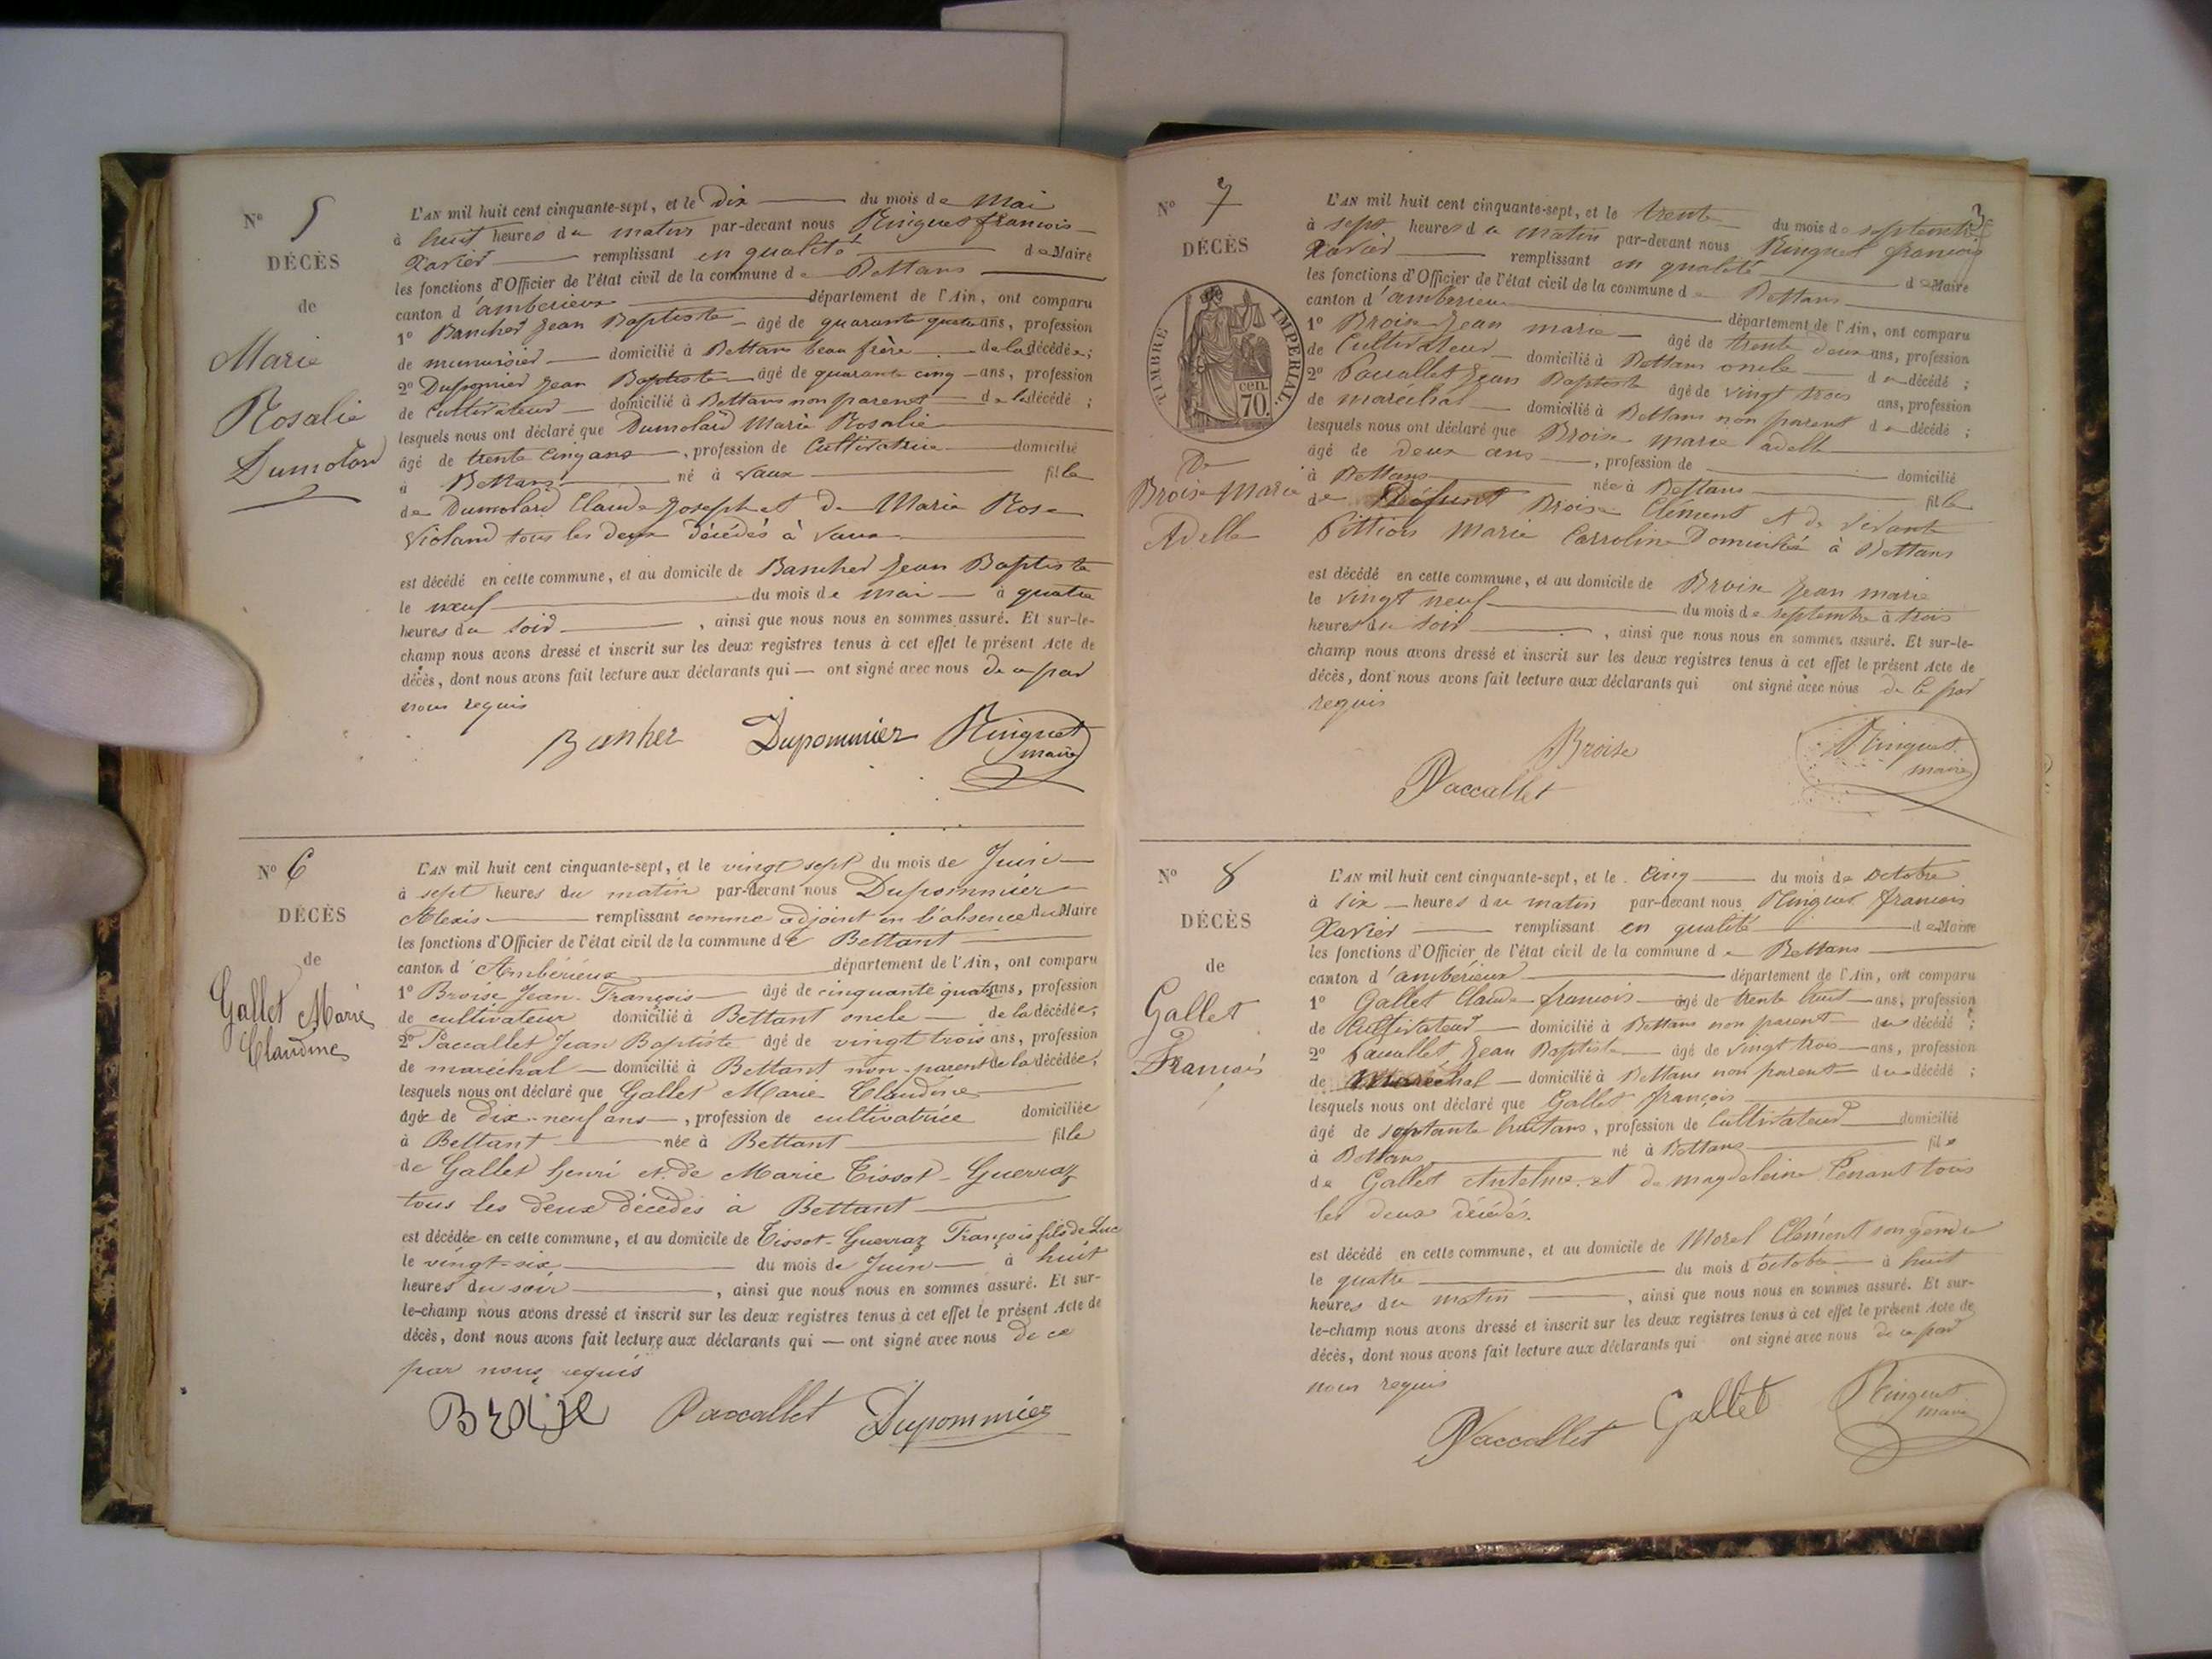 N° 5
DÉCÈS
de
Marie
Rosalie
Dumolard
L'AN mil huit cent cinquante-sept, et le Dix du mois de Mai
à huit heures du matin par-devant nous Ringuet françois
Xavier remplissant en qualité de Maire
les fonctions d'Officier de l'état civil de la commune de Bettans
canton d'amberieux département de l'Ain, ont comparu
1° Bancher Jean Baptiste âgé de quarante quatre ans, profession
de menuisier domicilié à Bettans beau frère de la décédée;
2° Duponnier Jean Baptiste âgé de quarante cinq ans, profession
de Cultivateur domicilié à Bettans non parent de la décédé;
lesquels nous ont déclaré que Dumolard Marie Rosalie
âgé de trente cinq ans, profession de Cultivatrice domicilié
à Bettans né à Vaux fille
de Dumolard Claude Joseph et de Marie Rose
Violand tous les deux Décédés à Vaux
est décédé en cette commune, et au domicile de Bancher Jean Baptiste
le neuf du mois de mai à quatre
heures du soir, ainsi que nous nous en sommes assuré. Et sur-le-
champ nous avons dressé et inscrit sur les deux registres tenus à cet effet le présent Acte de
décès, dont nous avons fait lecture aux déclarants qui — ont signé avec nous de ce par
nous requis
Banher Dupommier Ringuet
maire
N° 6
DÉCÈS
de
Gallet Marie
Claudine
L'AN mil huit cent cinquante-sept, et le vingt sept du mois de Juin
à sept heures du matin par-devant nous Dupommier
Alexis remplissant comme adjoint en l'absence du Maire
les fonctions d'Officier de l'état civil de la commune de Bettant
canton d'Ambérieux département de l'Ain, ont comparu
1° Broise Jean-François âgé de cinquante quatre ans, profession
de cultivateur domicilié à Bettant oncle de la décédée;
2° Paccallet Jean Baptiste âgé de vingt trois ans, profession
de maréchal domicilié à Bettant non-parent de la décédée;
lesquels nous ont déclaré que Gallet Marie Claudine
âgée de dix-neuf ans, profession de cultivatrice domiciliée
à Bettant née à Bettant fille
de Gallet henri et de Marie Tissot-Guerraz
tous les deux décédés à Bettant
est décédée en cette commune, et au domicile de Tissot-Guerraz François fils de Luc
le vingt-six du mois de Juin à huit
heures du soir, ainsi que nous nous en sommes assuré. Et sur-
le-champ nous avons dressé et inscrit sur les deux registres tenus à cet effet le présent Acte de
décès, dont nous avons fait lecture aux déclarants qui — ont signé avec nous de ce
par nous requis
Broise Paccallet Dupommier
3
N° 7
DÉCÈS
TIMBRE IMPÉRIAL
cen.
70.
De
Broise Marie
Adelle
L'AN mil huit cent cinquante-sept, et le trente du mois de septembre
à sept heures du matin par-devant nous Ringuet françois
Xavier remplissant en qualité de Maire
les fonctions d'Officier de l'état civil de la commune de Bettans
canton d'amberieux département de l'Ain, ont comparu
1° Broise Jean marie âgé de trente deux ans, profession
de Cultivateur domicilié à Bettans oncle du décédé;
2° Paccallet Jean Baptiste âgé de vingt trois ans, profession
de maréchal domicilié à Bettans non parent du décédé;
lesquels nous ont déclaré que Broise marie adelle
âgé de Deux ans, profession de domicilié
à Bettans née à Bettans fille
de Défunt Broise Clément et de vivante
Pittion Marie Carroline Domiciliée à Bettans
est décédé en cette commune, et au domicile de Broise Jean marie
le vingt neuf du mois de septembre à trois
heures du soir, ainsi que nous nous en sommes assuré. Et sur-le-
champ nous avons dressé et inscrit sur les deux registres tenus à cet effet le présent Acte de
décès, dont nous avons fait lecture aux déclarants qui ont signé avec nous de ce par
requis
Broise Ringuet
maire
Paccallet
N° 8
DÉCÈS
de
Gallet
Francois
L'AN mil huit cent cinquante-sept, et le Cinq du mois de Octobre
à six heures du matin par-devant nous Ringuet françois
Xavier remplissant en qualité de Maire
les fonctions d'Officier de l'état civil de la commune de Bettans
canton d'ambérieux département de l'Ain, ont comparu
1° Gallet Claude françois âgé de trente huit ans, profession
de Cultivateur domicilié à Bettans non parent du décédé;
2° Paccallet Jean Baptiste âgé de vingt trois ans, profession
de Maréchal domicilié à Bettans non parent du décédé;
lesquels nous ont déclaré que Gallet françois
âgé de septante huit ans, profession de Cultivateur domicilié
à Bettans né à Bettans fils
de Gallet Antelme et de magdeleine tous
les deux décédés.
est décédé en cette commune, et au domicile de Morel Clément son gendre
le quatre du mois d'octobre à huit
heures du matin, ainsi que nous nous en sommes assuré. Et sur-
le-champ nous avons dressé et inscrit sur les deux registres tenus à cet effet le présent Acte de
décès, dont nous avons fait lecture aux déclarants qui ont signé avec nous de ce par
nous requis
Paccallet Gallet Ringuet
maire